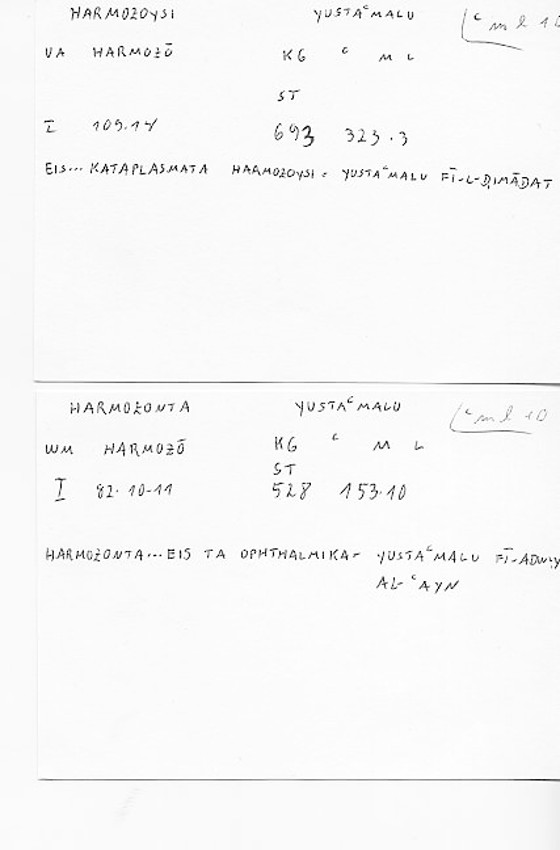 HARMOZOYSI YUSTAᶜMALU ᶜ m l 10
VA HARMOZŌ KG ᶜ M L
ST
I 109.14 693 323.3
EIS... KATAPLASMATA HARMOZOYSI = YUSTAᶜMALU FĪ-L-ḌIMĀDĀT
HARMOZONTA YUSTAᶜMALU ᶜ m l 10
WM HARMOZŌ KG ᶜ M L
ST
I 82.10-11 528 153.10
HARMOZONTA... EIS TA OPHTHALMIKA = YUSTAᶜMALU FĪ-ADWIY
AL-ᶜAYN